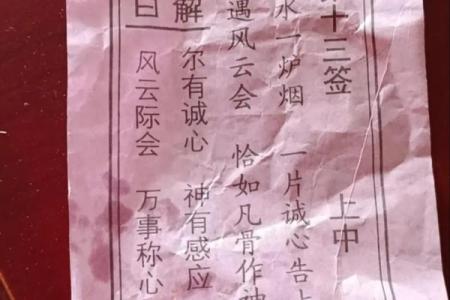 十三签 上中
水一炉烟 一片诚心告上
遇风云会 恰如凡骨作神
解 尔有诚心 神有感应
曰 风云际会 万事称心